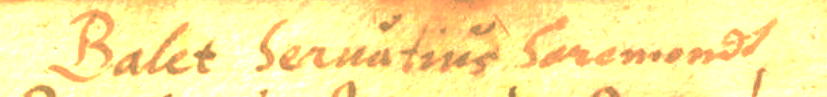 Balet Seruatius Soremondt